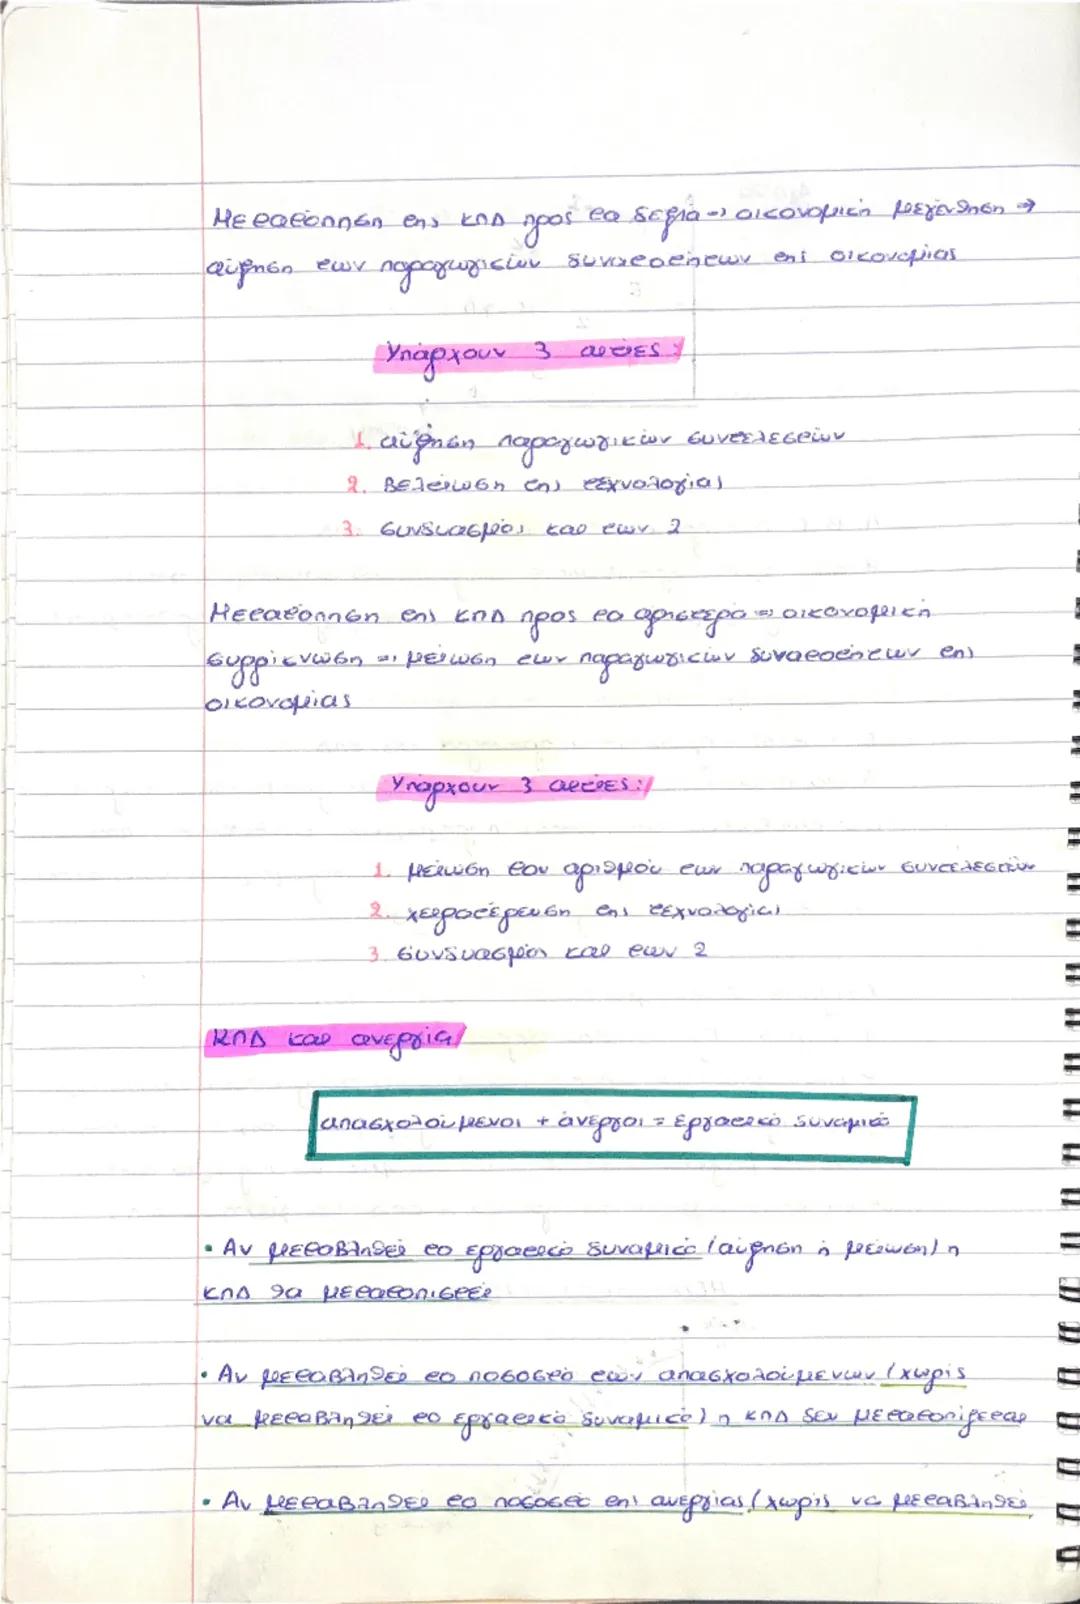 Μετατόπηση της ΚΠΔ προς τα δεξιά → οικονομική μεγένθηση →
αύξηση των παραγωγικών δυνατοτήτων της οικονομίας
Υπάρχουν 3 αιτίες:
1. αύξηση παραγωγικών συντελεστών
2. Βελτίωση της τεχνολογίας
3. συνδυασμός και των 2
Μετατόπηση της ΚΠΔ προς τα αριστερά → οικονομική
συρρίκνωση → μείωση των παραγωγικών δυνατοτήτων της
οικονομίας
Υπάρχουν 3 αιτίες:
1. μείωση του αριθμού των παραγωγικών συντελεστών
2. χειροτέρευση της τεχνολογίας
3. συνδυασμός και των 2
ΚΠΔ και ανεργία
απασχολούμενοι + άνεργοι = εργατικό δυναμικό
• Αν μεταβληθεί το εργατικό δυναμικό (αύξηση ή μείωση) η
ΚΠΔ θα μετατοπιστεί
• Αν μεταβληθεί το ποσοστό των απασχολούμενων (χωρίς
να μεταβληθεί το εργατικό δυναμικό) η ΚΠΔ δεν μετατοπίζεται
• Αν μεταβληθεί το ποσοστό της ανεργίας (χωρίς να μεταβληθεί